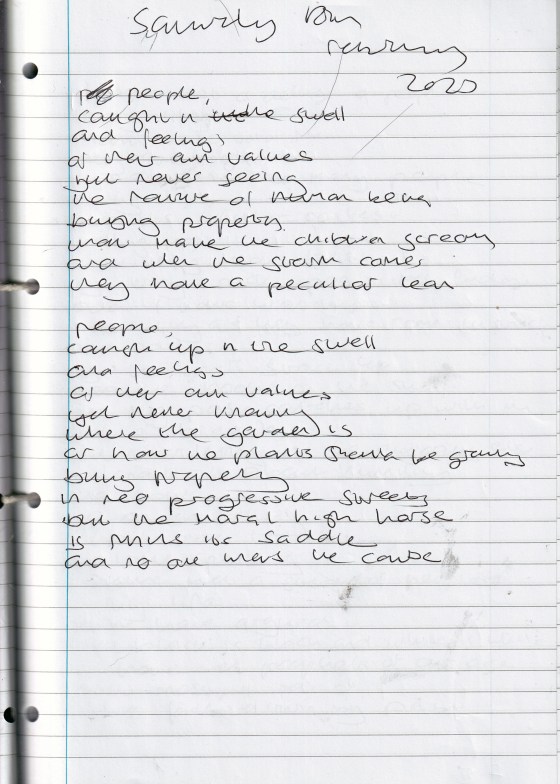 Saturday 18th
February
2020
people,
caught in the swell
and feelings
of their own values
yet never seeing
the nature of human being
buying property
that make the children scream
and when the swarm comes
they have a peculiar lean
people,
caught up in the swell
and feelings
of their own values
yet never knowing
where the garden is
or how the plants should be growing
buying property
in neo progressive streets
but the moral high horse
is minus its saddle
and no one wins the cause